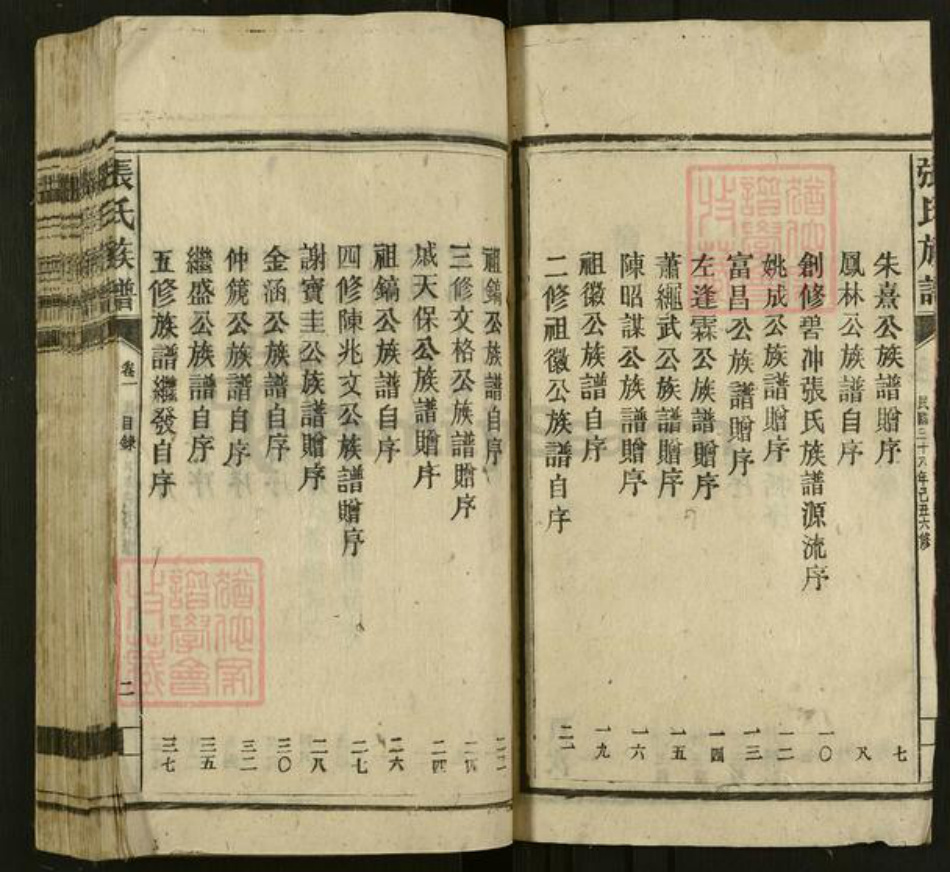 張氏族譜
民國三十八年己丑六修
朱熹公族譜贈序 七
鳳林公族譜自序 八
創修碧冲張氏族譜源流序 一〇
姚成公族譜贈序 一二
富昌公族譜贈序 一三
左逢霖公族譜贈序 一四
蕭繩武公族譜贈序 一五
陳昭謀公族譜贈序 一六
祖徽公族譜自序 一九
二修祖徽公族譜自序 二一
祖鎬公族譜自序 二二
三修文格公族譜贈序 二四
戚天保公族譜贈序 二四
祖鎬公族譜自序 二六
四修陳兆文公族譜贈序 二七
謝寶圭公族譜贈序 二八
金涵公族譜自序 三〇
仲箎公族譜自序 三二
繼盛公族譜自序 三五
五修族譜繼發自序 三七
張氏族譜
卷一
目錄
二